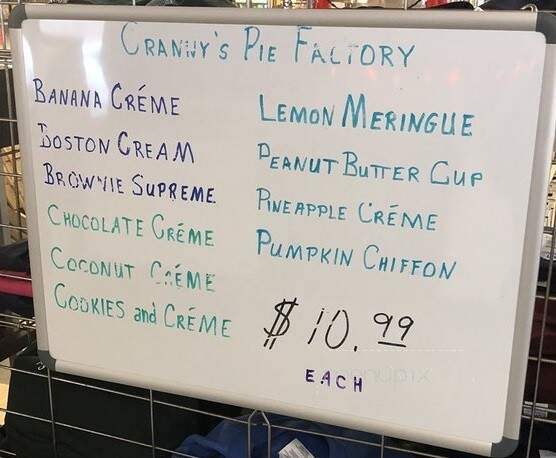 Granny's Pie Factory
Banana Créme
Boston Cream
Brownie Supreme
Chocolate Créme
Coconut Créme
Cookies and Créme
Lemon Meringue
Peanut Butter Cup
Pineapple Créme
Pumpkin Chiffon
$10.99
Each